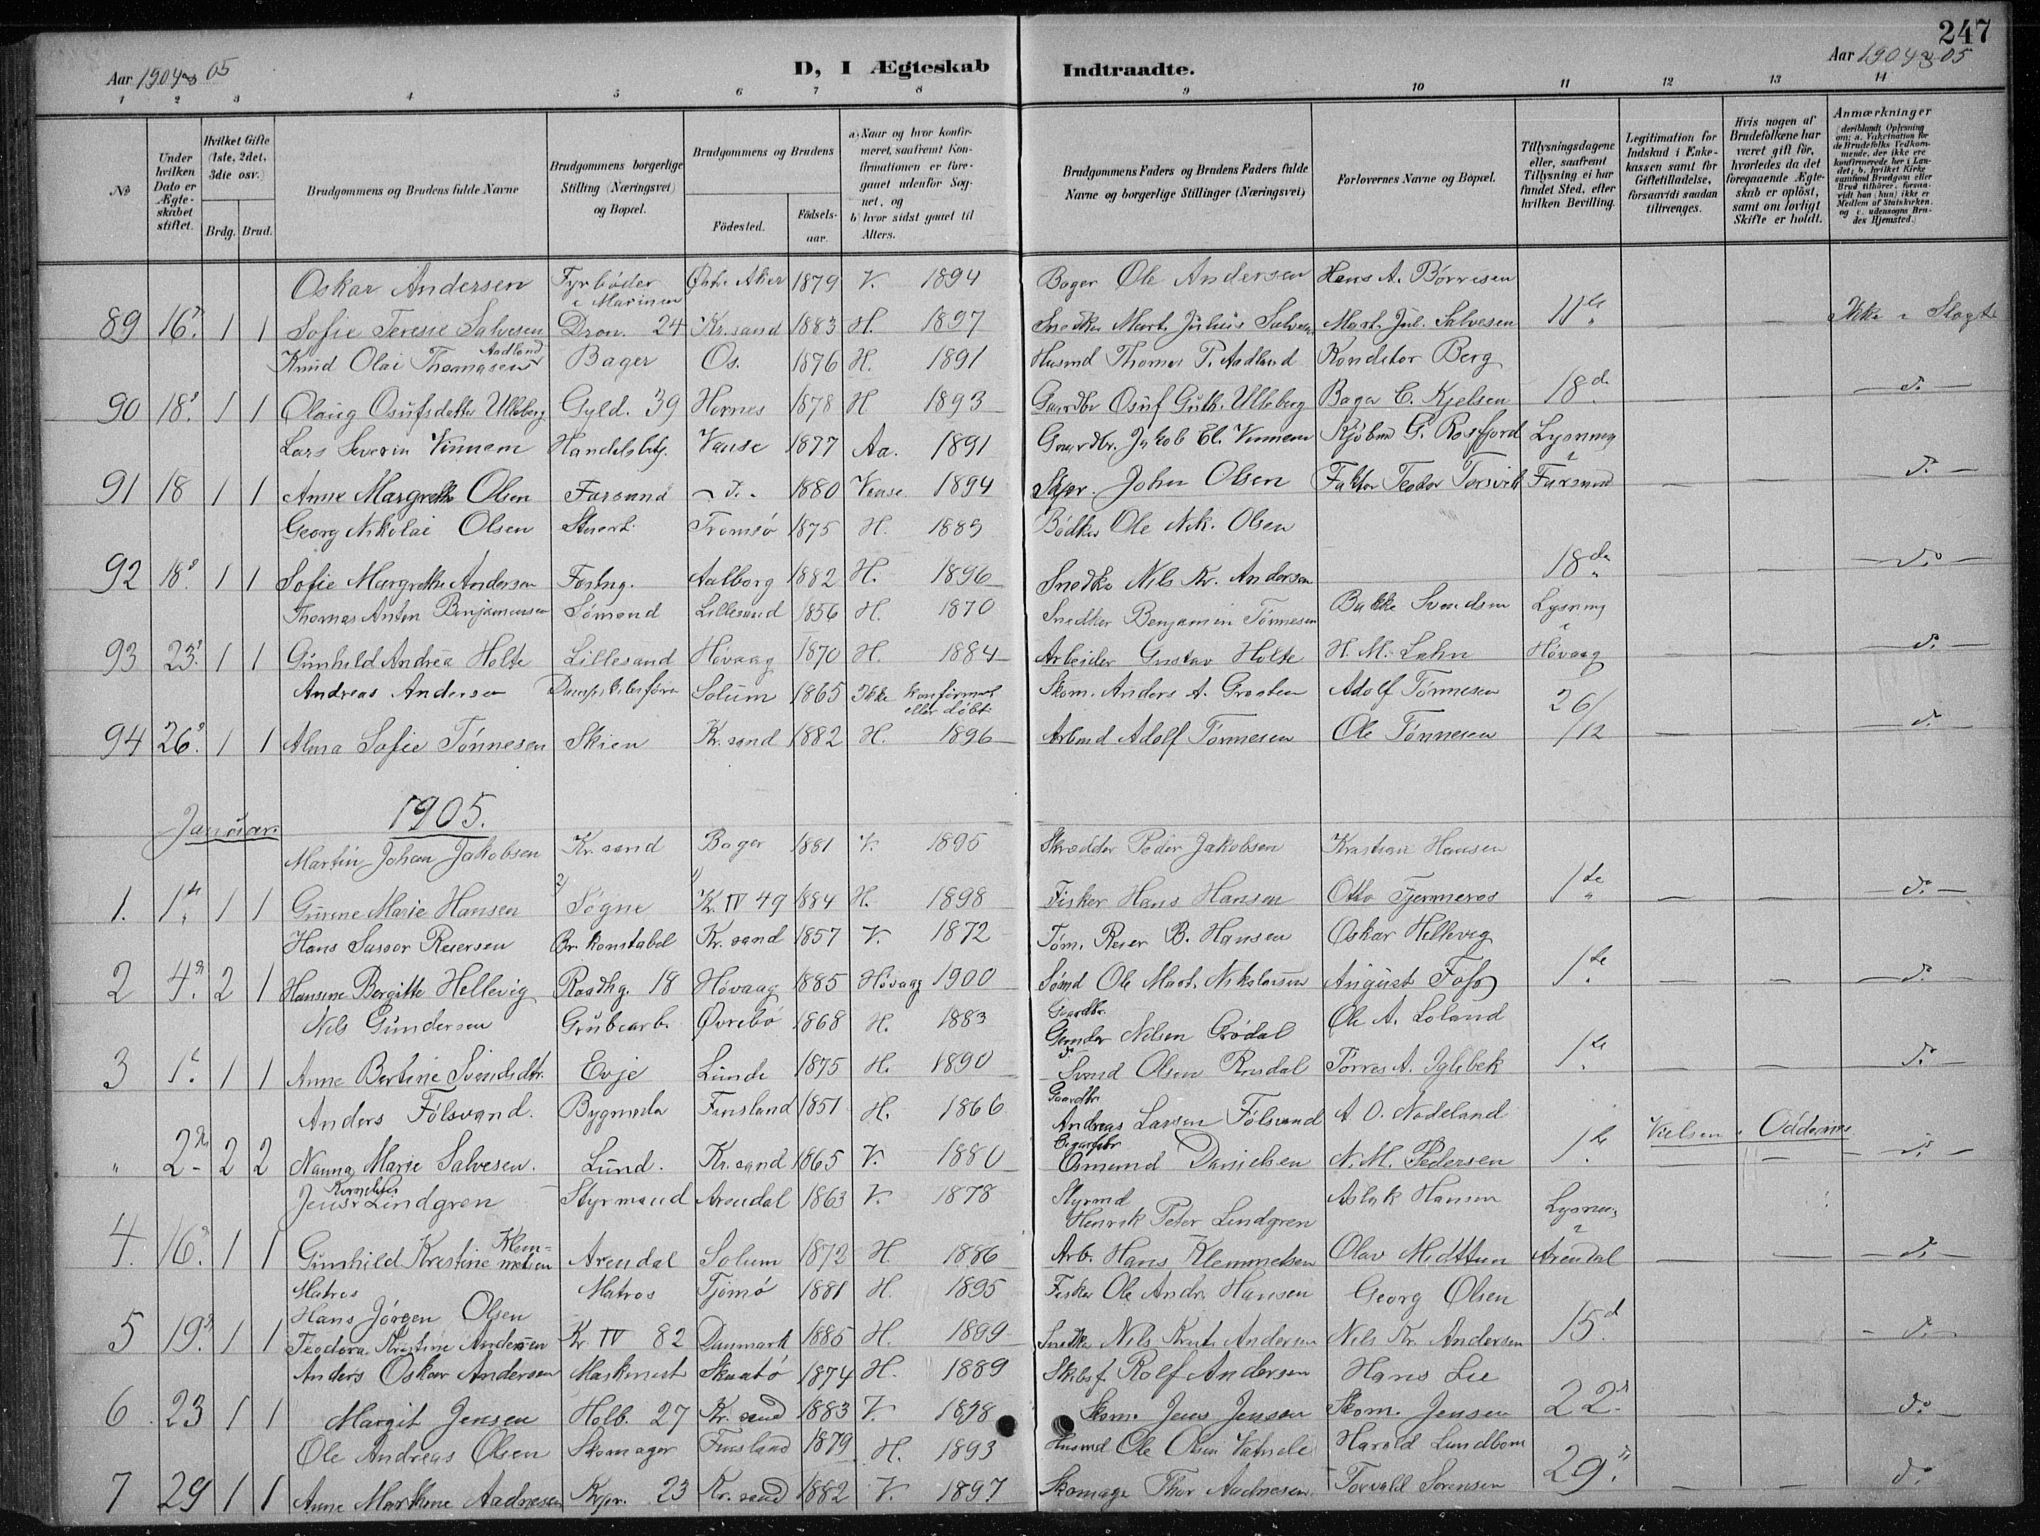 247
Aar 1904 & 05
D, I Ægteskab Indtraadte.
Aar 1904 & 05
1 2 3 4 5 6 7 8 9 10 11 12 13 14
No.
Under hvilken Dato er Ægteskabet stiftet.
Hvilket Gifte (1ste, 2det, 3die osv.)
Brdg. Brud.
Brudgommens og Brudens fulde Navne
Brudgommens borgerlige Stilling (Næringsvei) og Bopæl.
Brudgommens og Brudens
Fødested. Fødselsaar.
a) Naar og hvor konfirmeret, saafremt Konfirmationen er foregaaet udenfor Sognet, og b) hvor sidst gaaet til Alters.
Brudgommens Faders og Brudens Faders fulde Navne og borgerlige Stillinger (Næringsvei)
Forlovernes Navne og Bopæl.
Tillysningsdagene eller, saafremt Tillysning ei har fundet Sted, efter hvilken Bevilling.
Legitimation for Indskud i Enkekassen samt for Giftetilladelse, forsaavidt saadan tiltrænges.
Hvis nogen af Brudefolkene har været gift før, hvorledes da det foregaaende Ægteskab er opløst, samt om lovligt Skifte er holdt.
Anmærkninger
Oskar Andersen Fyrbøder i Marinen Østre Aker 1879 V. 1894 Bager Ole Andersen Hans A. Børresen
89 16. 1 1 Sofie Terese Salvesen Dron. 24 Kr.sand 1883 H. 1897 Snedker Mart. Julius Salvesen Mart. Jul. Salvesen 11te — — Ikke i Slægt
Knud Olai Thomassen Aadland Bager Os. 1876 H. 1891 Husmd Thomas P. Aadland Konditor Berg
90 18. 1 1 Olaug Osufsdatter Ulleberg Gyld. 39 Hornes 1878 H 1893 Gaardbr Osuf Guth. Ulleberg Bager C. Kjelsen 18de — — do
Lars Severin Vinnem Handelsbtj. Vanse 1877 Aa. 1891 Gaardbr. Jakob El. Vinnem Kjøbmd G. Rosfjord Lysning
91 18 1 1 Anne Margrethe Olsen Farsund do 1880 Vanse 1894 Skpr. John Olsen Faktor Teodor Torsvik i Farsund — — do
Georg Nikolai Olsen Stuert. Tromsø 1875 H. 1889 Bødker Ole Nik. Olsen
92 18. 1 1 Sofie Margrethe Andersen Festng. Aalborg 1882 H. 1896 Snedker Nils Kr. Andersen 18de — — do
Thomas Anton Benjaminsen Sømand Lillesand 1856 H. 1870 Snedker Benjamin Tønnesen Bakke Svendsen Lysning
93 23. 1 1 Gunhild Andrea Holte Lillesand Høvaag 1870 H. 1884 Arbeider Gustav Holte H. M. Lahn i Høvaag — — do
Andreas Andersen Solum 1865 Ikke konfirmeret eller døbt Skom. Anders A. Graaten Adolf Tønnesen 26/
94 26. 1 1 Alma Sofie Tønnesen Skien Kr.sand 1882 H. 1896 Arbmd Adolf Tønnesen Ole Tønnesen /12 — — do
1905.
Januar.
Martin Johan Jakobsen Kr.sand Bager 1881 V. 1895 Skrædder Peder Jakobsen Kristian Hansen
1. 1. 1 1 Gurine Marie Hansen 2) Søgne 1) Kr. IV 49 1884 H. 1898 Fisker Hans Hansen Otto Fjermeros 1te — — do
Hans Sasser Reiersen Br. konstabel Kr.sand 1857 V. 1872 Tøm. Reier B. Hansen Oskar Hellevig
2 4. 2 1 Hansine Bergitte Hellevig Raadhg. 18 Høvaag 1885 Høvaag 1900 Sømd Ole Mart. Nikolaisen August Foss 1te — — do
Nils Gundersen Grubearb. Øvrebø 1868 H. 1883 Gaardbr. Gunder Nilsen Grødal Ole A. Løland
3 1. 1 1 Anne Bertine Svendsdtr. Evje Lunde 1875 H. 1890 do Svend Olsen Torres A. Iglebek 1te — — do
Anders Følsvand. Bygmada Finsland 1851 H. 1866 Gaardbr. Andreas Larsen Følsvand A. O. Nodeland
„ 2. 2 2 Nanna Marie Salvesen. Lund. Kr.sand 1865 V. 1880 Osmund Danielsen N. M. Pedersen 1te Vielsen i Oddernes — do
Jens Kornelius Lindgren Styrmand Arendal 1863 V. 1878 Styrmd Henrik Peter Lindgren Aslak Hansen Lysning
4. 16. 1 1 Gunhild Kristine Klemmetsen Arendal Solum 1872 H. 1886 Arb. Hans Klemmetsen Olav Midttun i Arendal — — do
Matros Hans Jørgen Olsen Matros Tjømø 1881 H. 1895 Fisker Ole Andr. Hansen Georg Olsen
5 19. 1 1 Teodora Kristine Andersen Kr IV 82 Danmark 1885 H. 1899 Snedker Nils Krist. Andersen Nils Kr. Andersen 15d. — — do
Anders Oskar Andersen Maskinist Skaatø 1874 H. 1889 Skibsf. Rolf Andersen Hans Lie
6 23 1 1 Margit Jensen Holb. 27 Kr.sand 1883 V. 1898 Skom. Jens Jensen Skom. Jensen 22. — — do
Ole Andreas Olsen Skomager Finsland 1879 H. 1893 Husmd Ole Olsen Harald Lundbom
7 29 1 1 Anne Martine Aadnesen Kr.sand 1882 V. 1897 Skomager Thor Aadnesen Torvald Sørensen 29. — — do